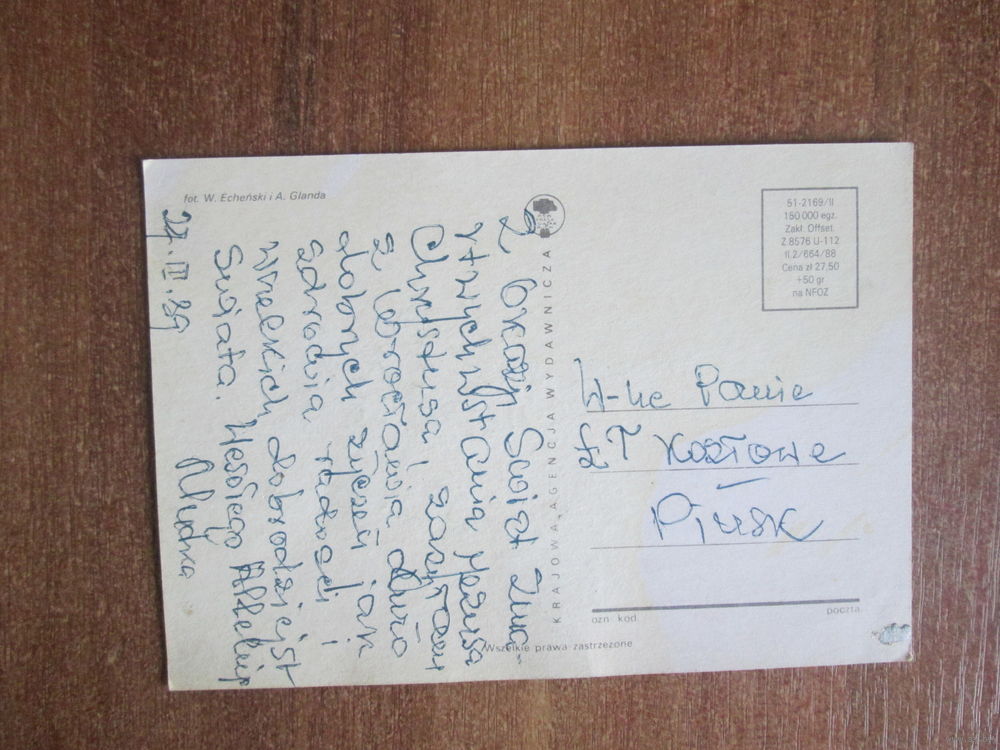 fot. W. Echeński i A. Glanda
Z Okazji Świąt Zma-
rtwychwstania Jezusa
Chrystusa zasyłam
z Wrocławia dużo
dobrych życzeń jak
zdrowia radości i
wszelkich dobrodziejst
Świata. Wesołego Alleluja
27.III.89
KRAJOWA AGENCJA WYDAWNICZA
51-2169/II
150 000 egz.
Zakł. Offset.
Z 8576 U-112
II.2/664/88
Cena zł 27,50
+50 gr
na NFOZ
W-ne Panie
Kozłowe
Pińsk
ozn. kod.
poczta
Wszelkie prawa zastrzeżone